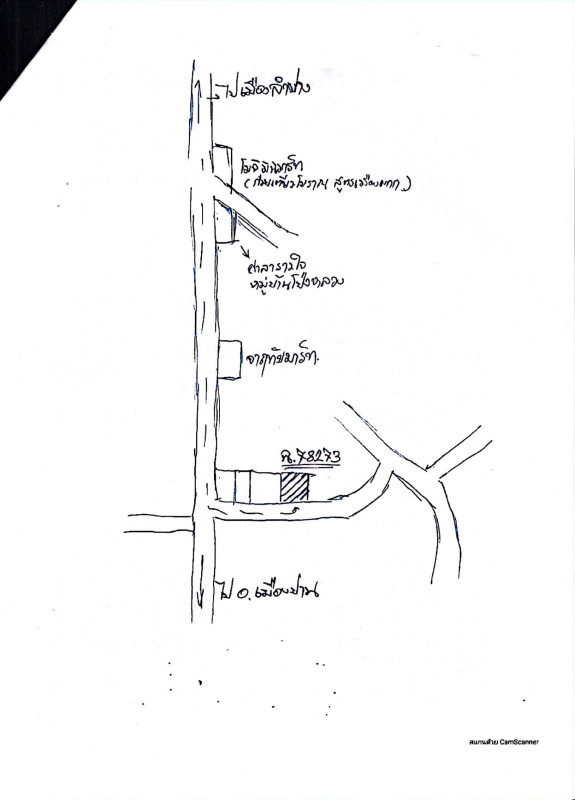 ไปเมืองลำปาง
โมจิมินิมาร์ท
(ก๋วยเตี๋ยวโบราณ สูตรเรือนแพ)
ศาลารวมใจ
หมู่บ้านโป่งหลวง
จารุทัยมาร์ท.
ฉ.78273
ไป อ.เมืองปาน
สแกนด้วย CamScanner